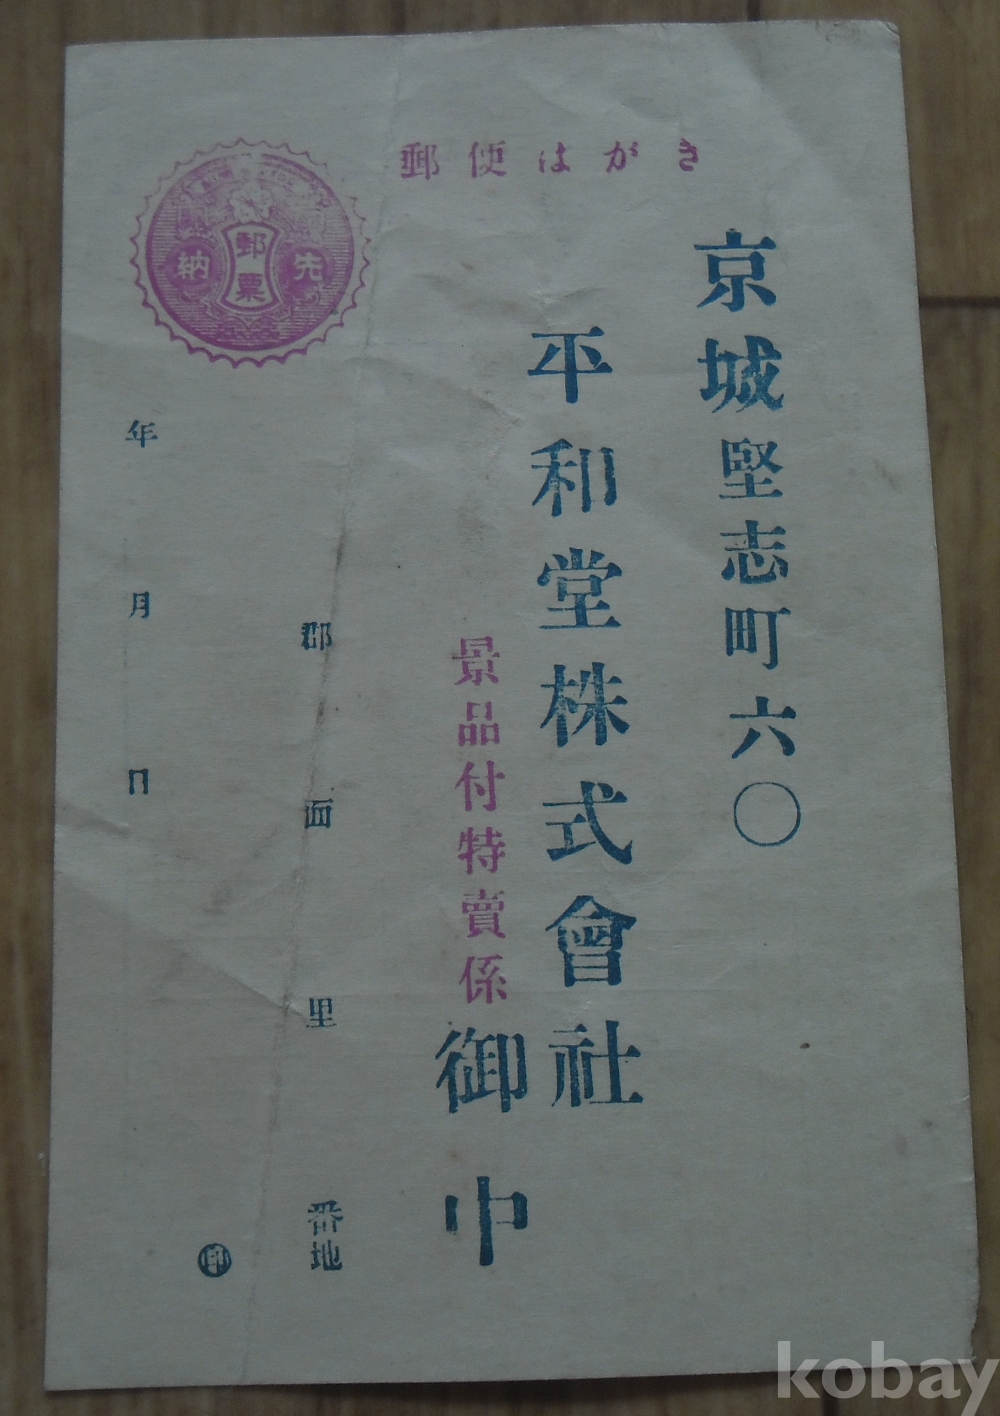 郵便はがき
郵票
先納
京城堅志町六〇
平和堂株式會社
景品付特賣係
御中
郡面里番地
印
年月日
kobay